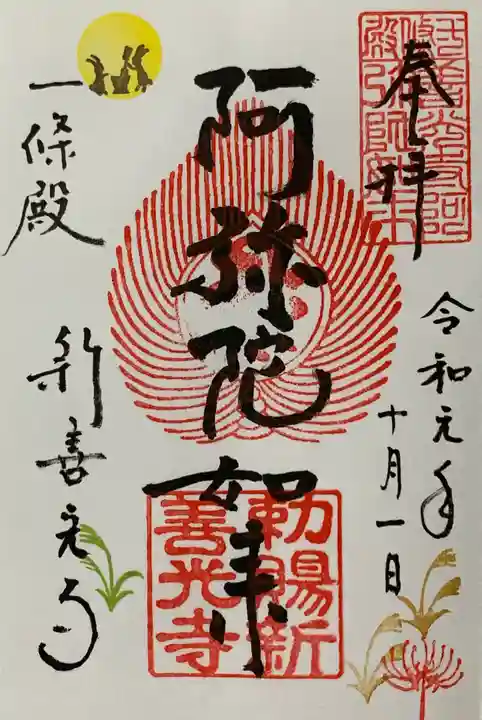 奉拝
令和元年
十月一日
阿弥陀如来
一條殿
新善光寺
勅賜新
善光寺